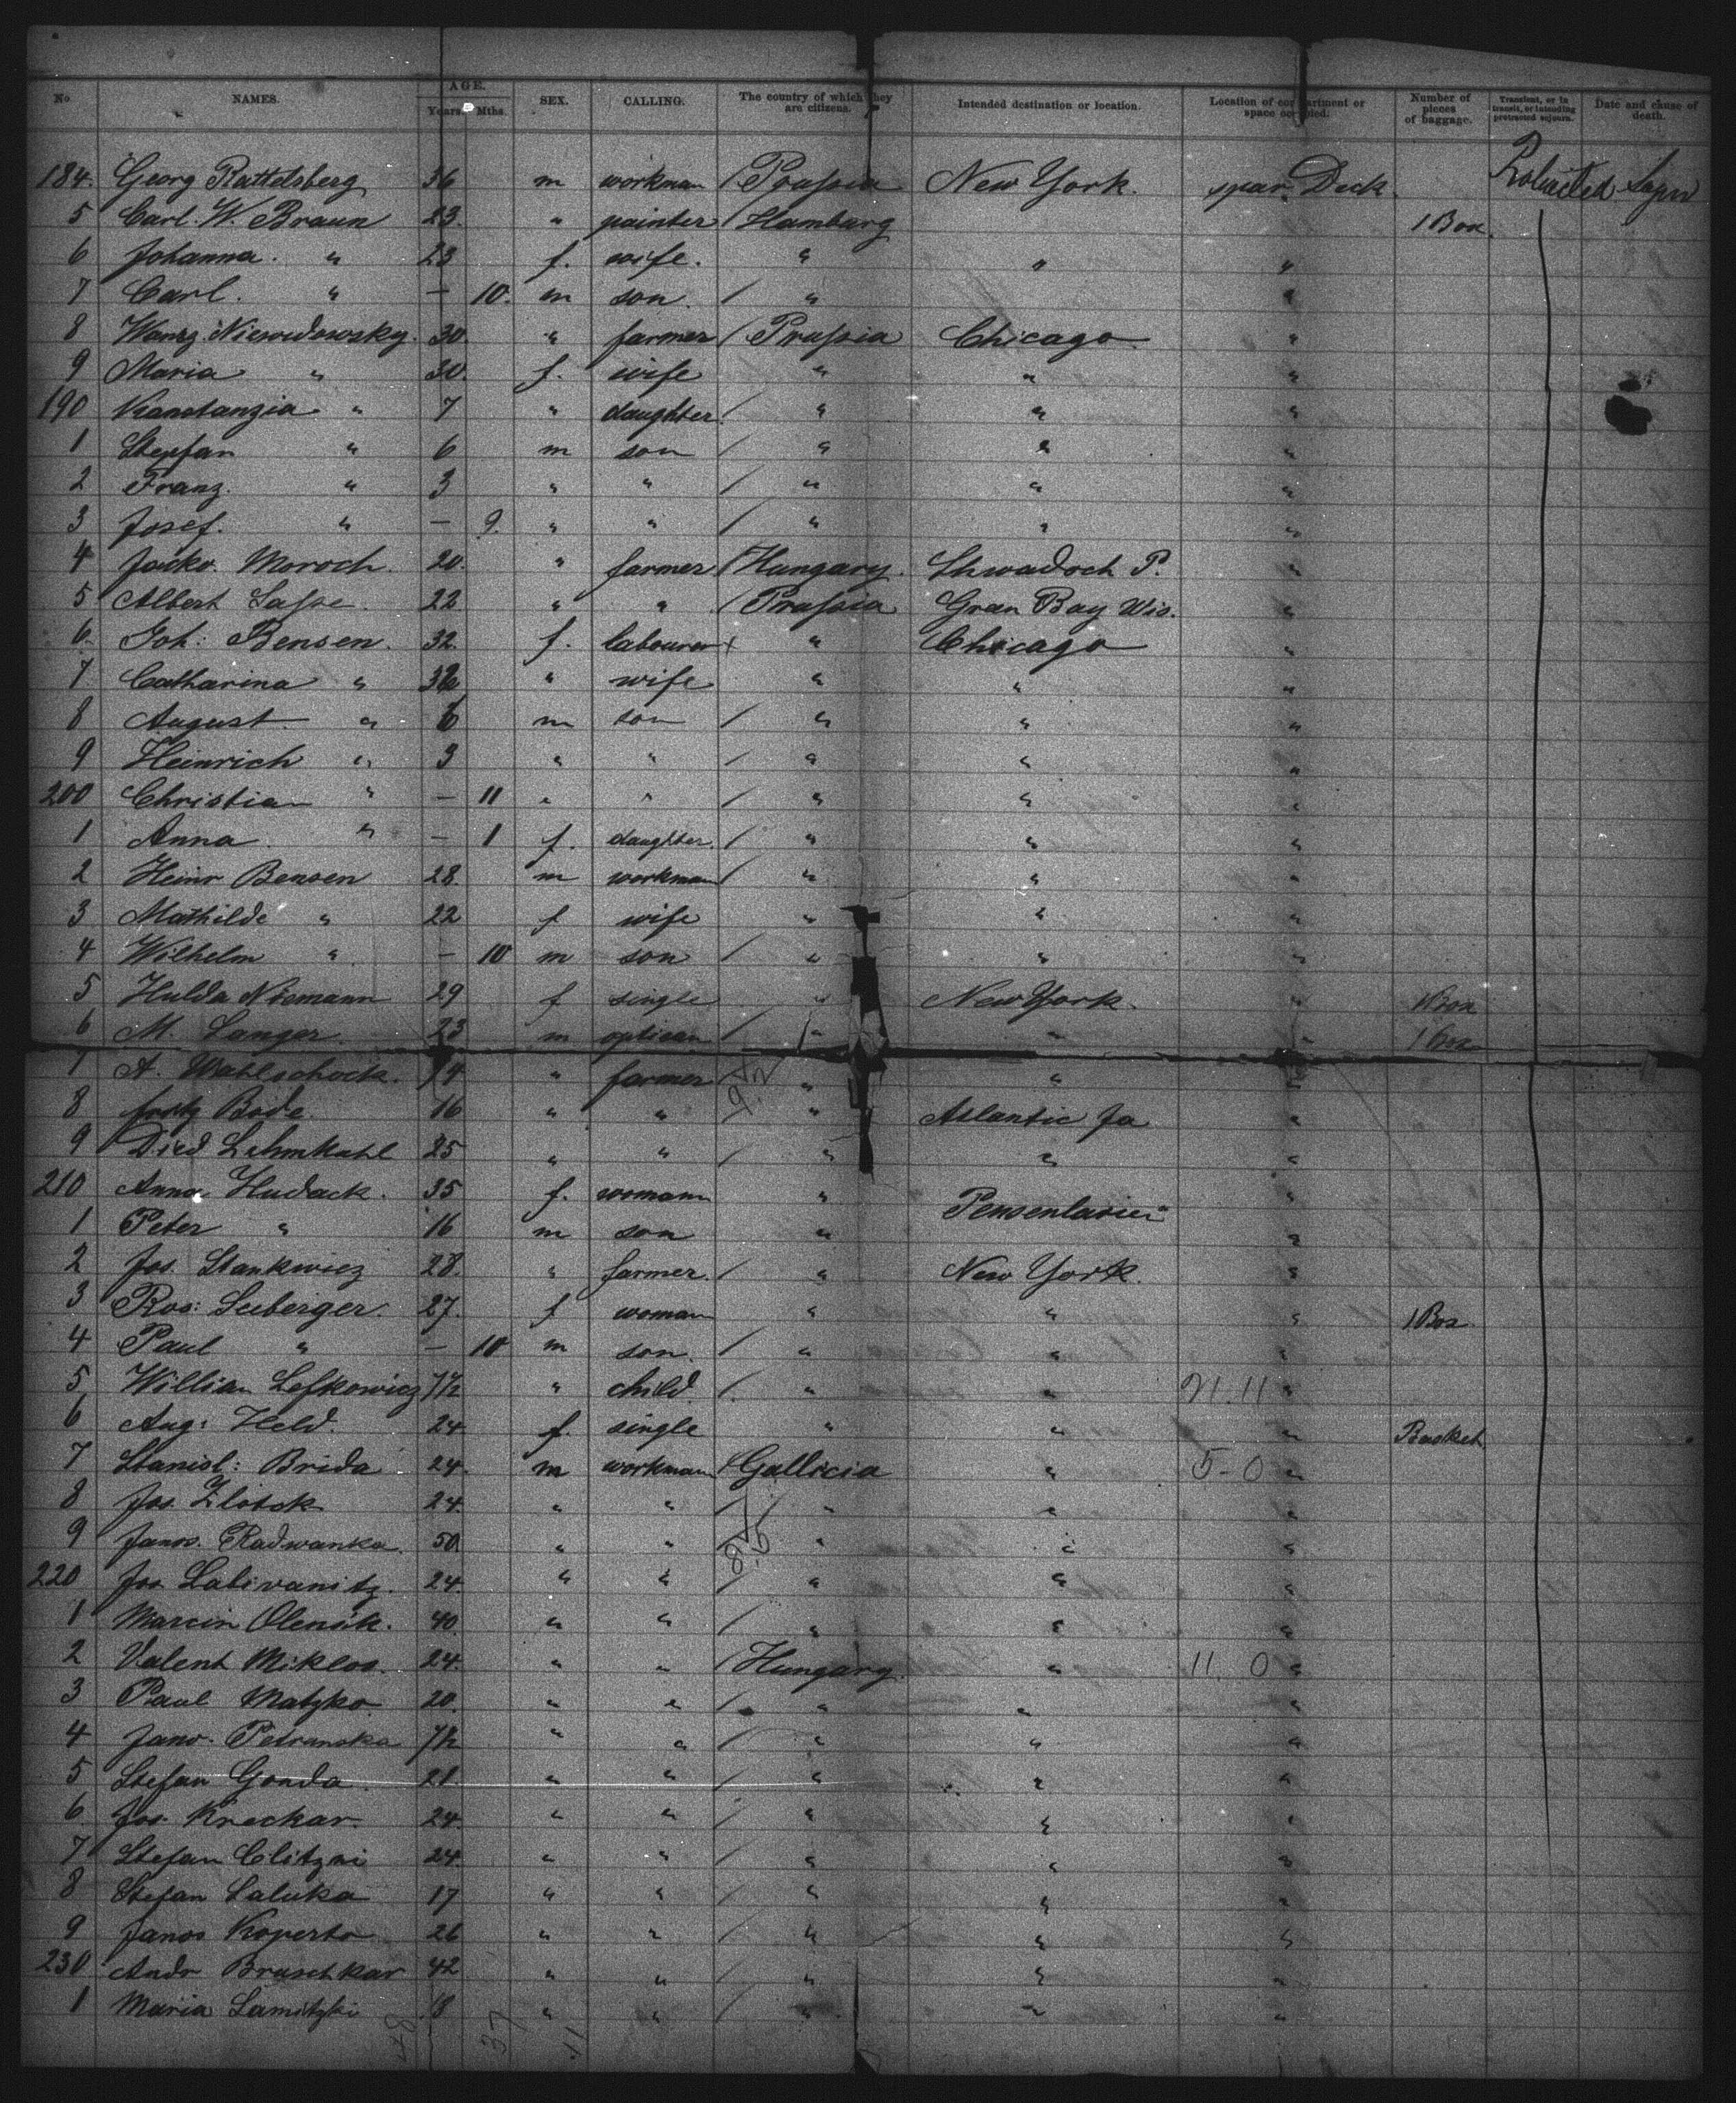 No NAMES. AGE. Years. Mths. SEX. CALLING. The country of which they are citizens. Intended destination or location. Location of compartment or space occupied. Number of pieces of baggage. Transient, or in transit, or intending protracted sojourn. Date and cause of death.
184. Georg Rattelsberg 36 m workman / Prussia New York. spar Deck
5 Carl. W. Braun 23. " painter / Hamburg 1 Box.
6 Johanna. " 23 f. wife. " " "
7 Carl. " – 10. m son. / " "
8 Niewidowsky. 30. " farmer / Prussia Chicago "
9 Maria " 30. f. wife " " "
190 Konstanzia " 7 " daughter / " " "
1 Stepfan " 6 m son " " "
2 Franz. " 3 " " / " " "
3 Josef. " – 9. " " / " " "
4 Moroch. 20. " farmer / Hungary. P. "
5 Albert Sasse. 22 " " / Prussia Gran Bay Wis. "
6. Joh: Bensen. 32. f. labourer " Chicago "
7 Catharina " wife " " "
8 August " 6 m son / " " "
9 Heinrich " 3 " " / " " "
200 Christian " – 11 " " / " " "
1 Anna. " – 1 f. daughter. / " " "
2 Heinr Bensen 28. m workman / " " "
3 Mathilde " 22 f wife " " "
4 Wilhelm " – 10 m son / " " "
5 Hulda Niemann 29 f single " New York. " 1 Box
6 M. Langer. 23 m optican / " " " 1 Box
7 A. Wahlschock. " farmer " " "
8 Bode. 16 " " " Atlantic Ja "
9 Died Lehmkuhl 25 " " / " " "
210 Anna Hudack. 35 f. womann " "
1 Peter " 16 m son " "
2 Jos. Stankwicz 28. " farmer. / " New York. "
3 Ros: Seeberger. 27. f woman " " " 1 Box.
4 Paul " – 10 m son. / " " "
5 William Lefkowicz 7½ " child / " " 21. 11 "
6 Aug: Held. 24 f. single " " " Basket.
7 Stanisl: Brida 24. m workman / Gallicia " 5-0 "
8 Jos. Zlotck 24. " " / " " "
9 Janos. Radwanska. 50. " " / " " "
220 Jos Labivanitz. 24. " " / " " "
1 Marcin Olensik. 40. " " / " " "
2 Valent Miklos. 24. " " / Hungary. " 11. 0 "
3 Paul Matzko. 20. " " / " " "
4 Jano. Petranska 7½ " " / " " "
5 Stefan Gonda. 21. " " / " " "
6 Jos. Kreckar. 24. " " / " " "
7 Stefan Clitzni 24 " " / " " "
8 Stefan Laluka 17 " " / " " "
9 Janos Koperto 26 " " / " " "
230 Andr Bruschkar 42 " " / " " "
1 Maria Lamitzki 18 " " / " " "
48 37 11